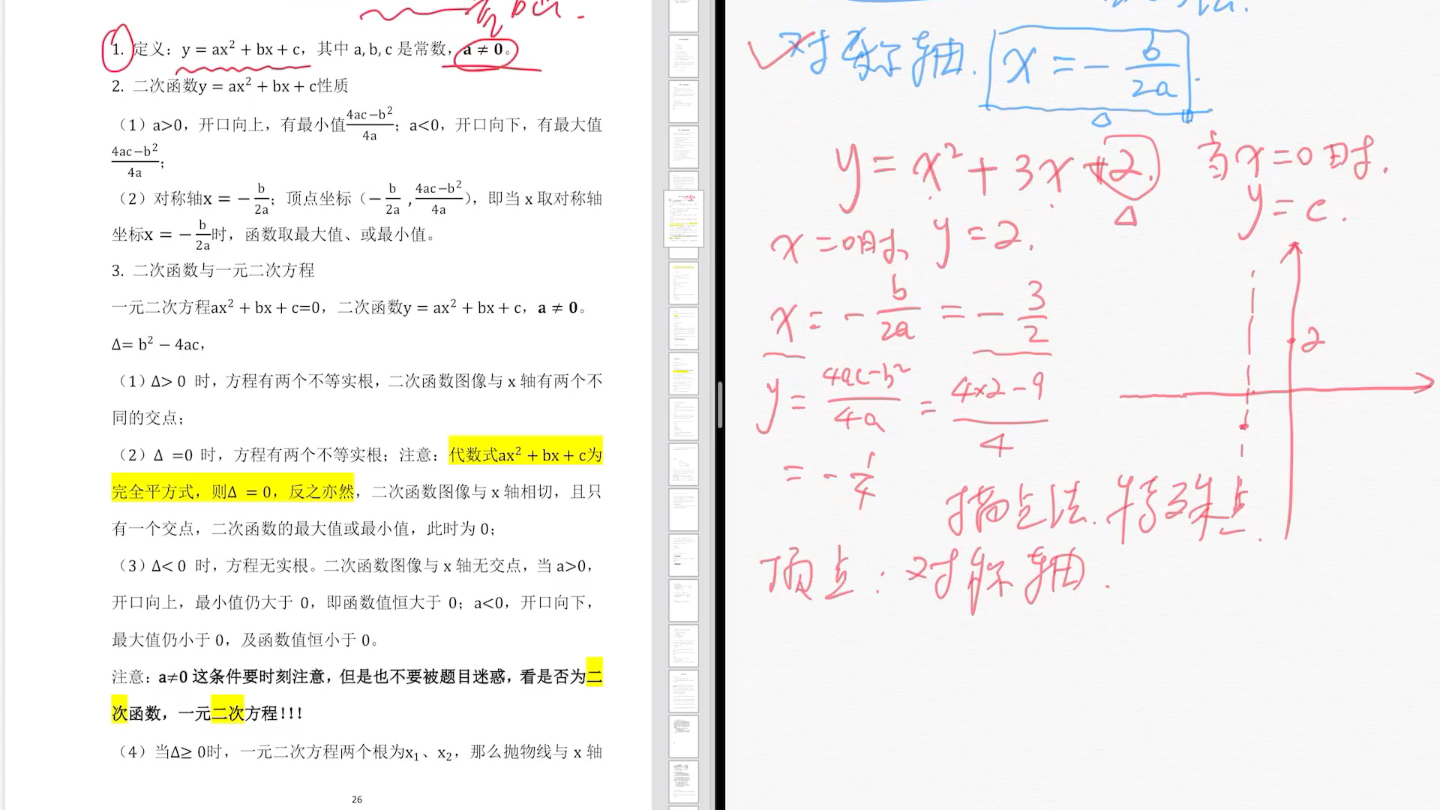 1. 定义：y = ax² + bx + c，其中 a, b, c 是常数，a ≠ 0。
2. 二次函数y = ax² + bx + c性质
（1）a>0，开口向上，有最小值(4ac−b²)/(4a)；a<0，开口向下，有最大值
(4ac−b²)/(4a)；
（2）对称轴x = −b/(2a)；顶点坐标（−b/(2a) , (4ac−b²)/(4a)），即当 x 取对称轴
坐标x = −b/(2a)时，函数取最大值、或最小值。
3. 二次函数与一元二次方程
一元二次方程ax² + bx + c=0，二次函数y = ax² + bx + c，a ≠ 0。
Δ= b² − 4ac，
（1）Δ> 0 时，方程有两个不等实根，二次函数图像与 x 轴有两个不
同的交点；
（2）Δ =0 时，方程有两个不等实根；注意：代数式ax² + bx + c为
完全平方式，则Δ = 0，反之亦然，二次函数图像与 x 轴相切，且只
有一个交点，二次函数的最大值或最小值，此时为 0；
（3）Δ< 0 时，方程无实根。二次函数图像与 x 轴无交点，当 a>0，
开口向上，最小值仍大于 0，即函数值恒大于 0；a<0，开口向下，
最大值仍小于 0，及函数值恒小于 0。
注意：a≠0 这条件要时刻注意，但是也不要被题目迷惑，看是否为二
次函数，一元二次方程！！！
（4）当Δ≥ 0时，一元二次方程两个根为x₁、x₂，那么抛物线与 x 轴
26
对称轴. x = −b/(2a).
y = x² + 3x + 2. 当x=0时.
y = c.
x = 0时, y = 2.
x = −b/(2a) = −3/2
2
y = (4ac−b²)/(4a) = (4×2−9)/4
= −1/4
描点法. 特殊点.
顶点：对称轴.